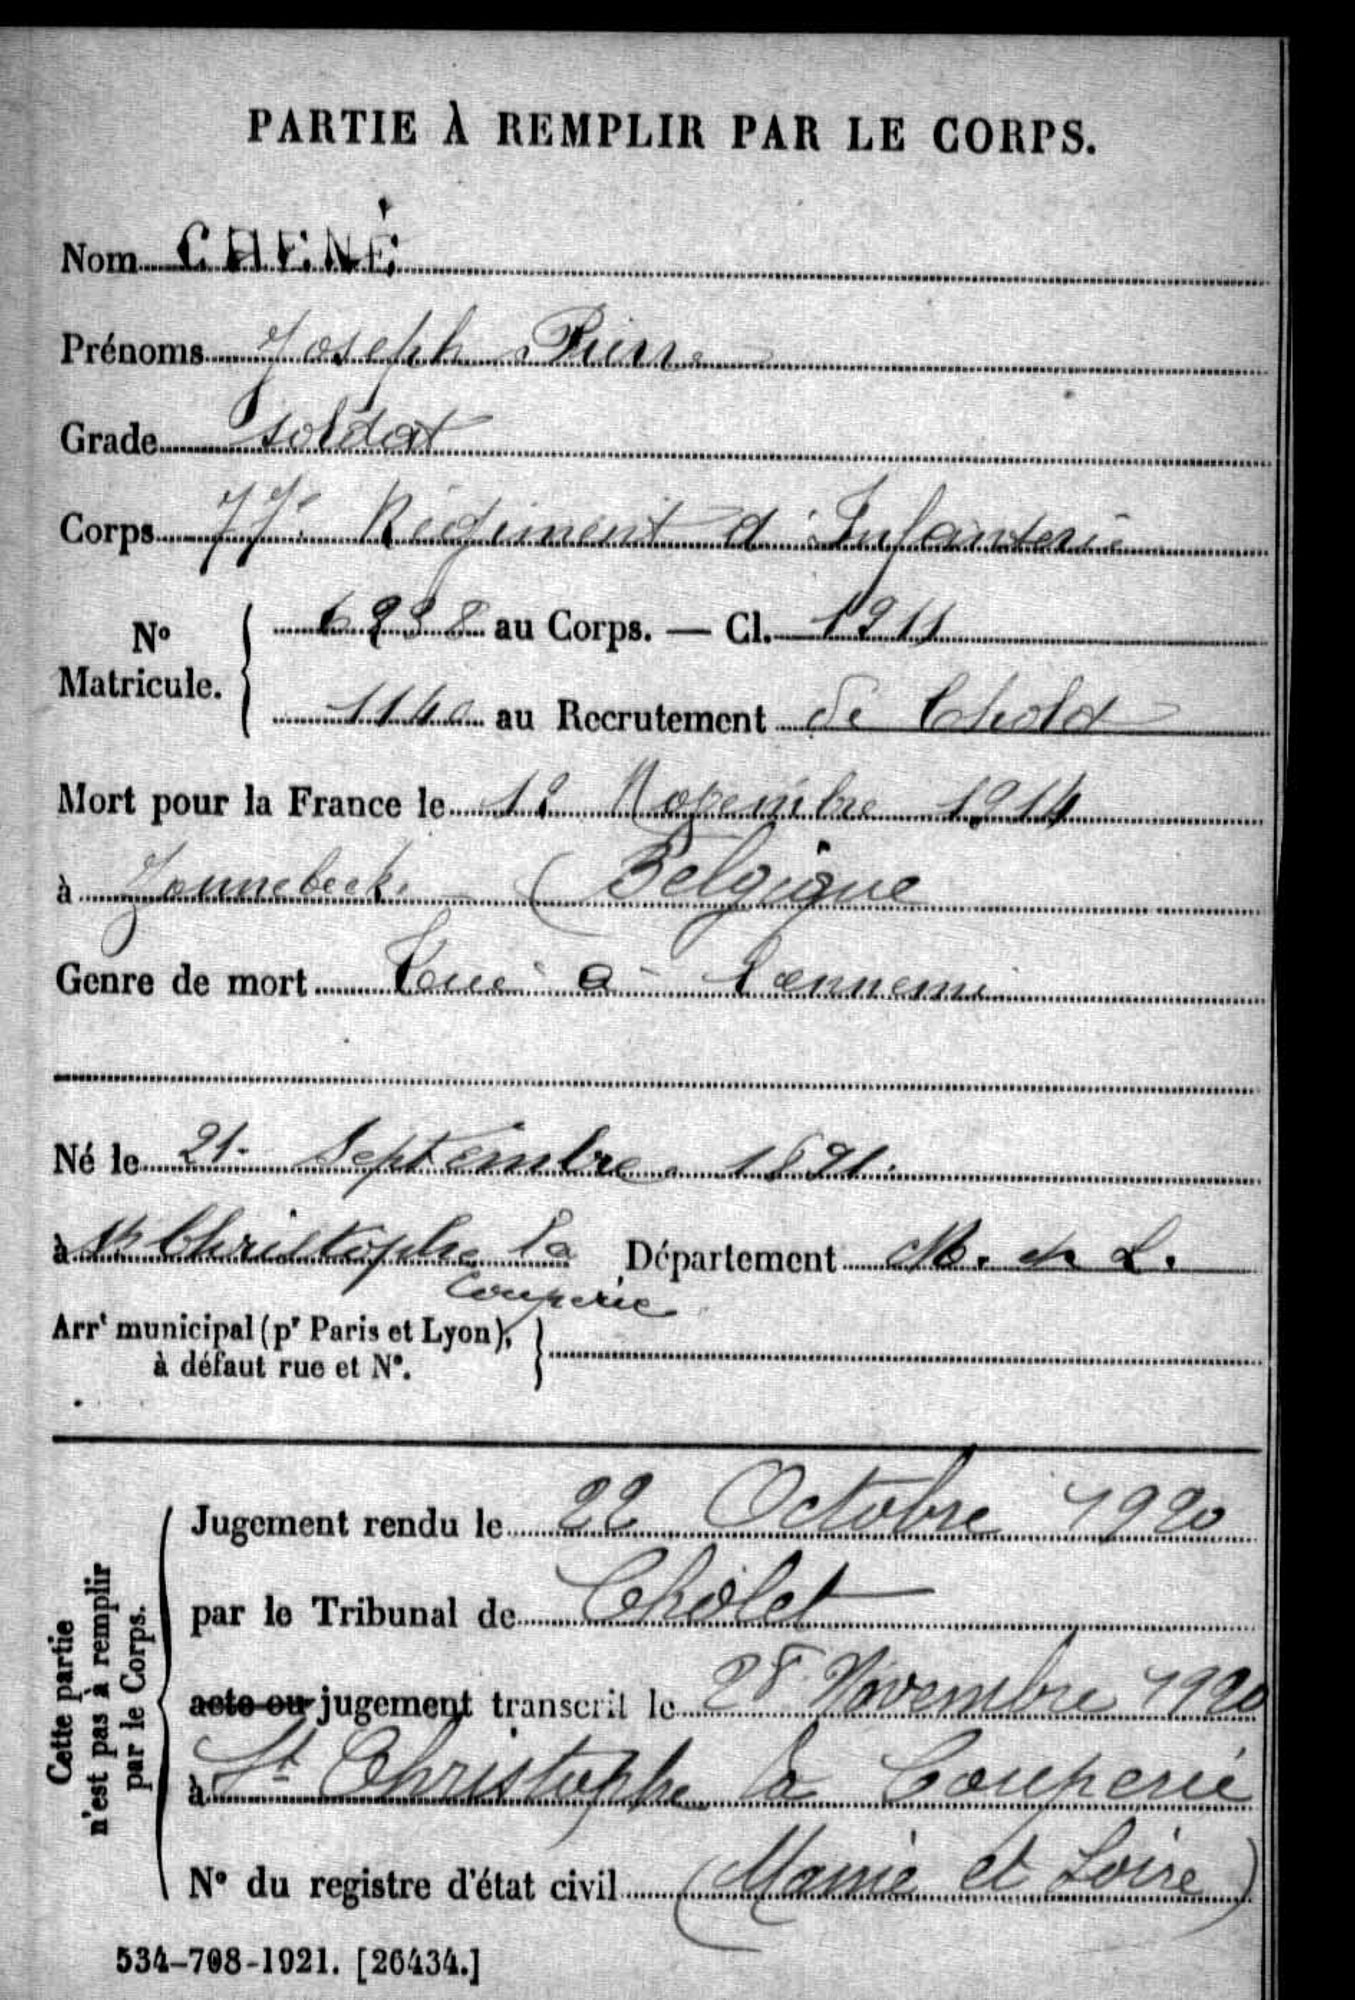 PARTIE À REMPLIR PAR LE CORPS.
Nom CHENÉ
Prénoms Joseph Pierre
Grade soldat
Corps 77e Régiment d'Infanterie
No Matricule. { 6298 au Corps. — Cl. 1911
1140 au Recrutement de Cholet
Mort pour la France le 1er Novembre 1914
à Zonnebecke (Belgique
Genre de mort Tué à l'ennemi
Né le 21 Septembre 1891
à St Christophe la Couperie Département M. et L.
Arrt municipal (pr Paris et Lyon), à défaut rue et No. }
Cette partie n'est pas à remplir par le Corps.
Jugement rendu le 22 Octobre 1920
par le Tribunal de Cholet
acte ou jugement transcrit le 28 Novembre 1920
à St Christophe la Couperie
No du registre d'état civil (Maine et Loire)
534-708-1921. [26434.]